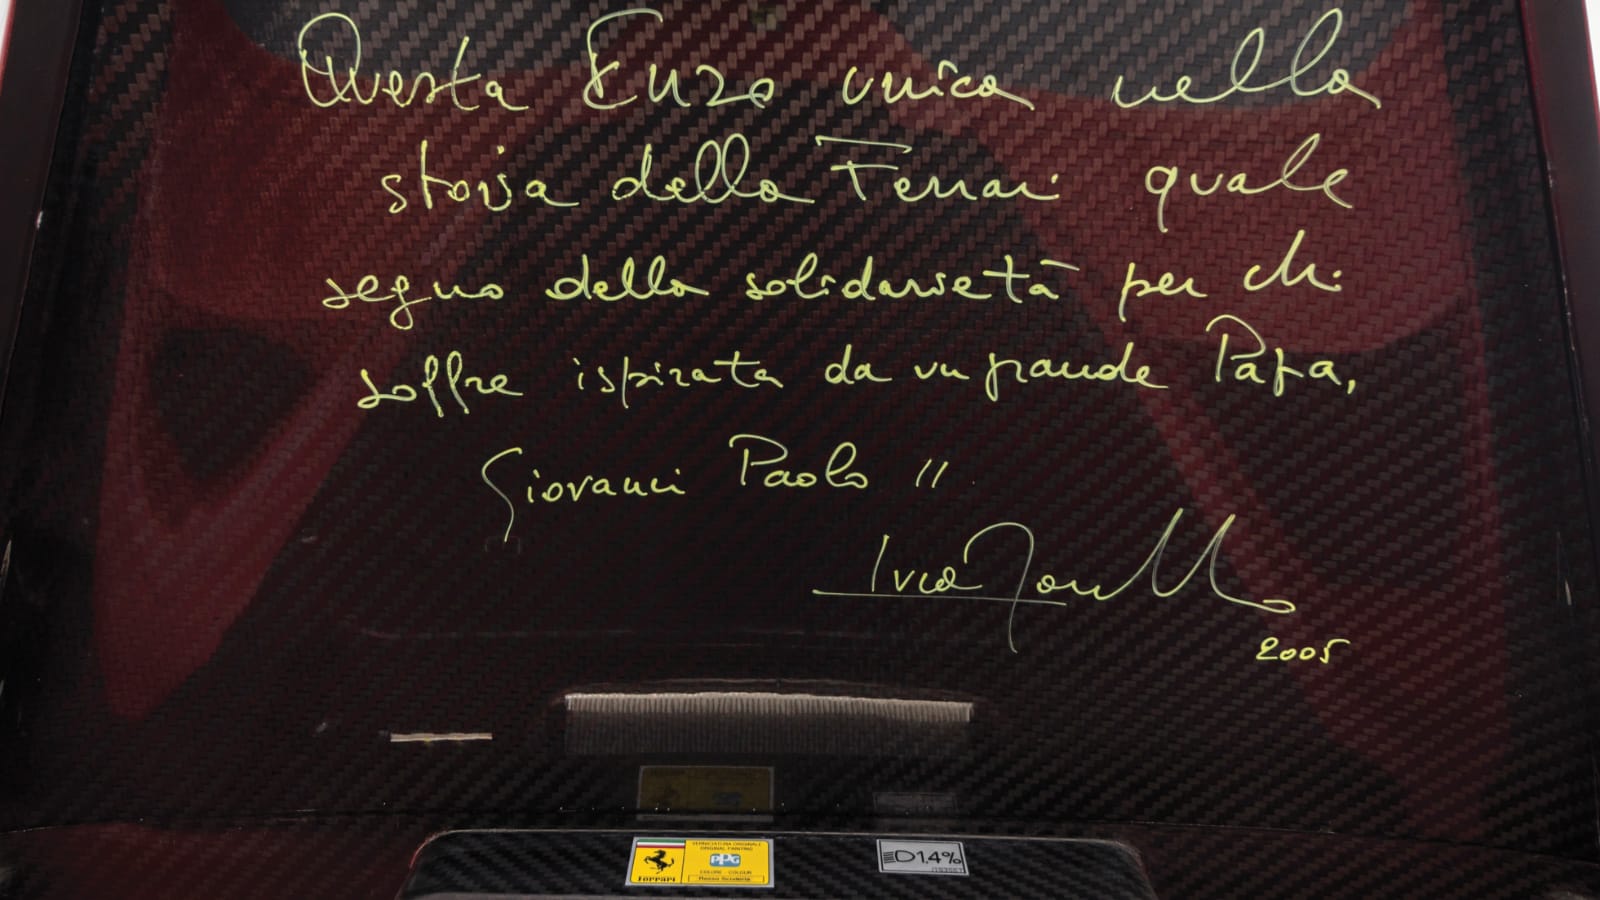 Questa Enzo unica nella
storia della Ferrari quale
segno della solidarietà per chi
soffre ispirata da un grande Papa,
Giovanni Paolo II
2005
VERNICIATURA ORIGINALE
ORIGINAL PAINTING
PPG
COLORE - COLOUR
Rosso Scuderia
Ferrari
D1,4%